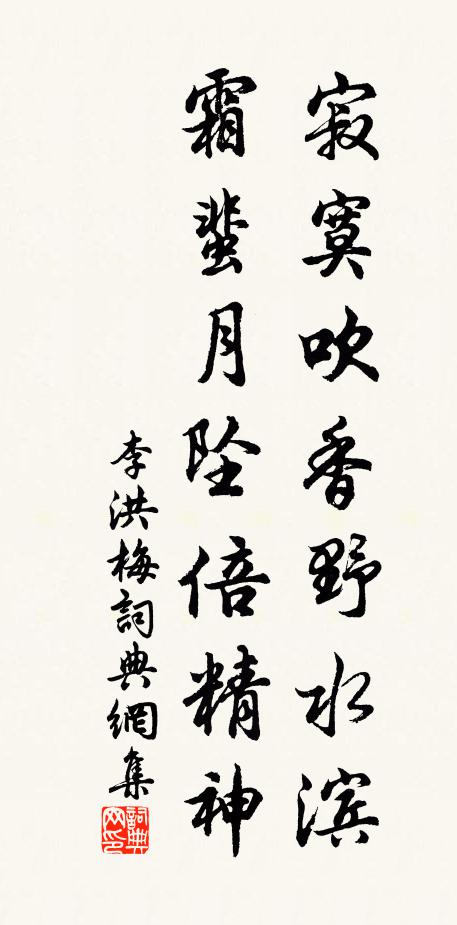 寂寞吹香野水滨
霜蜚月坠倍精神
李洪梅詞典網集
詞典网印